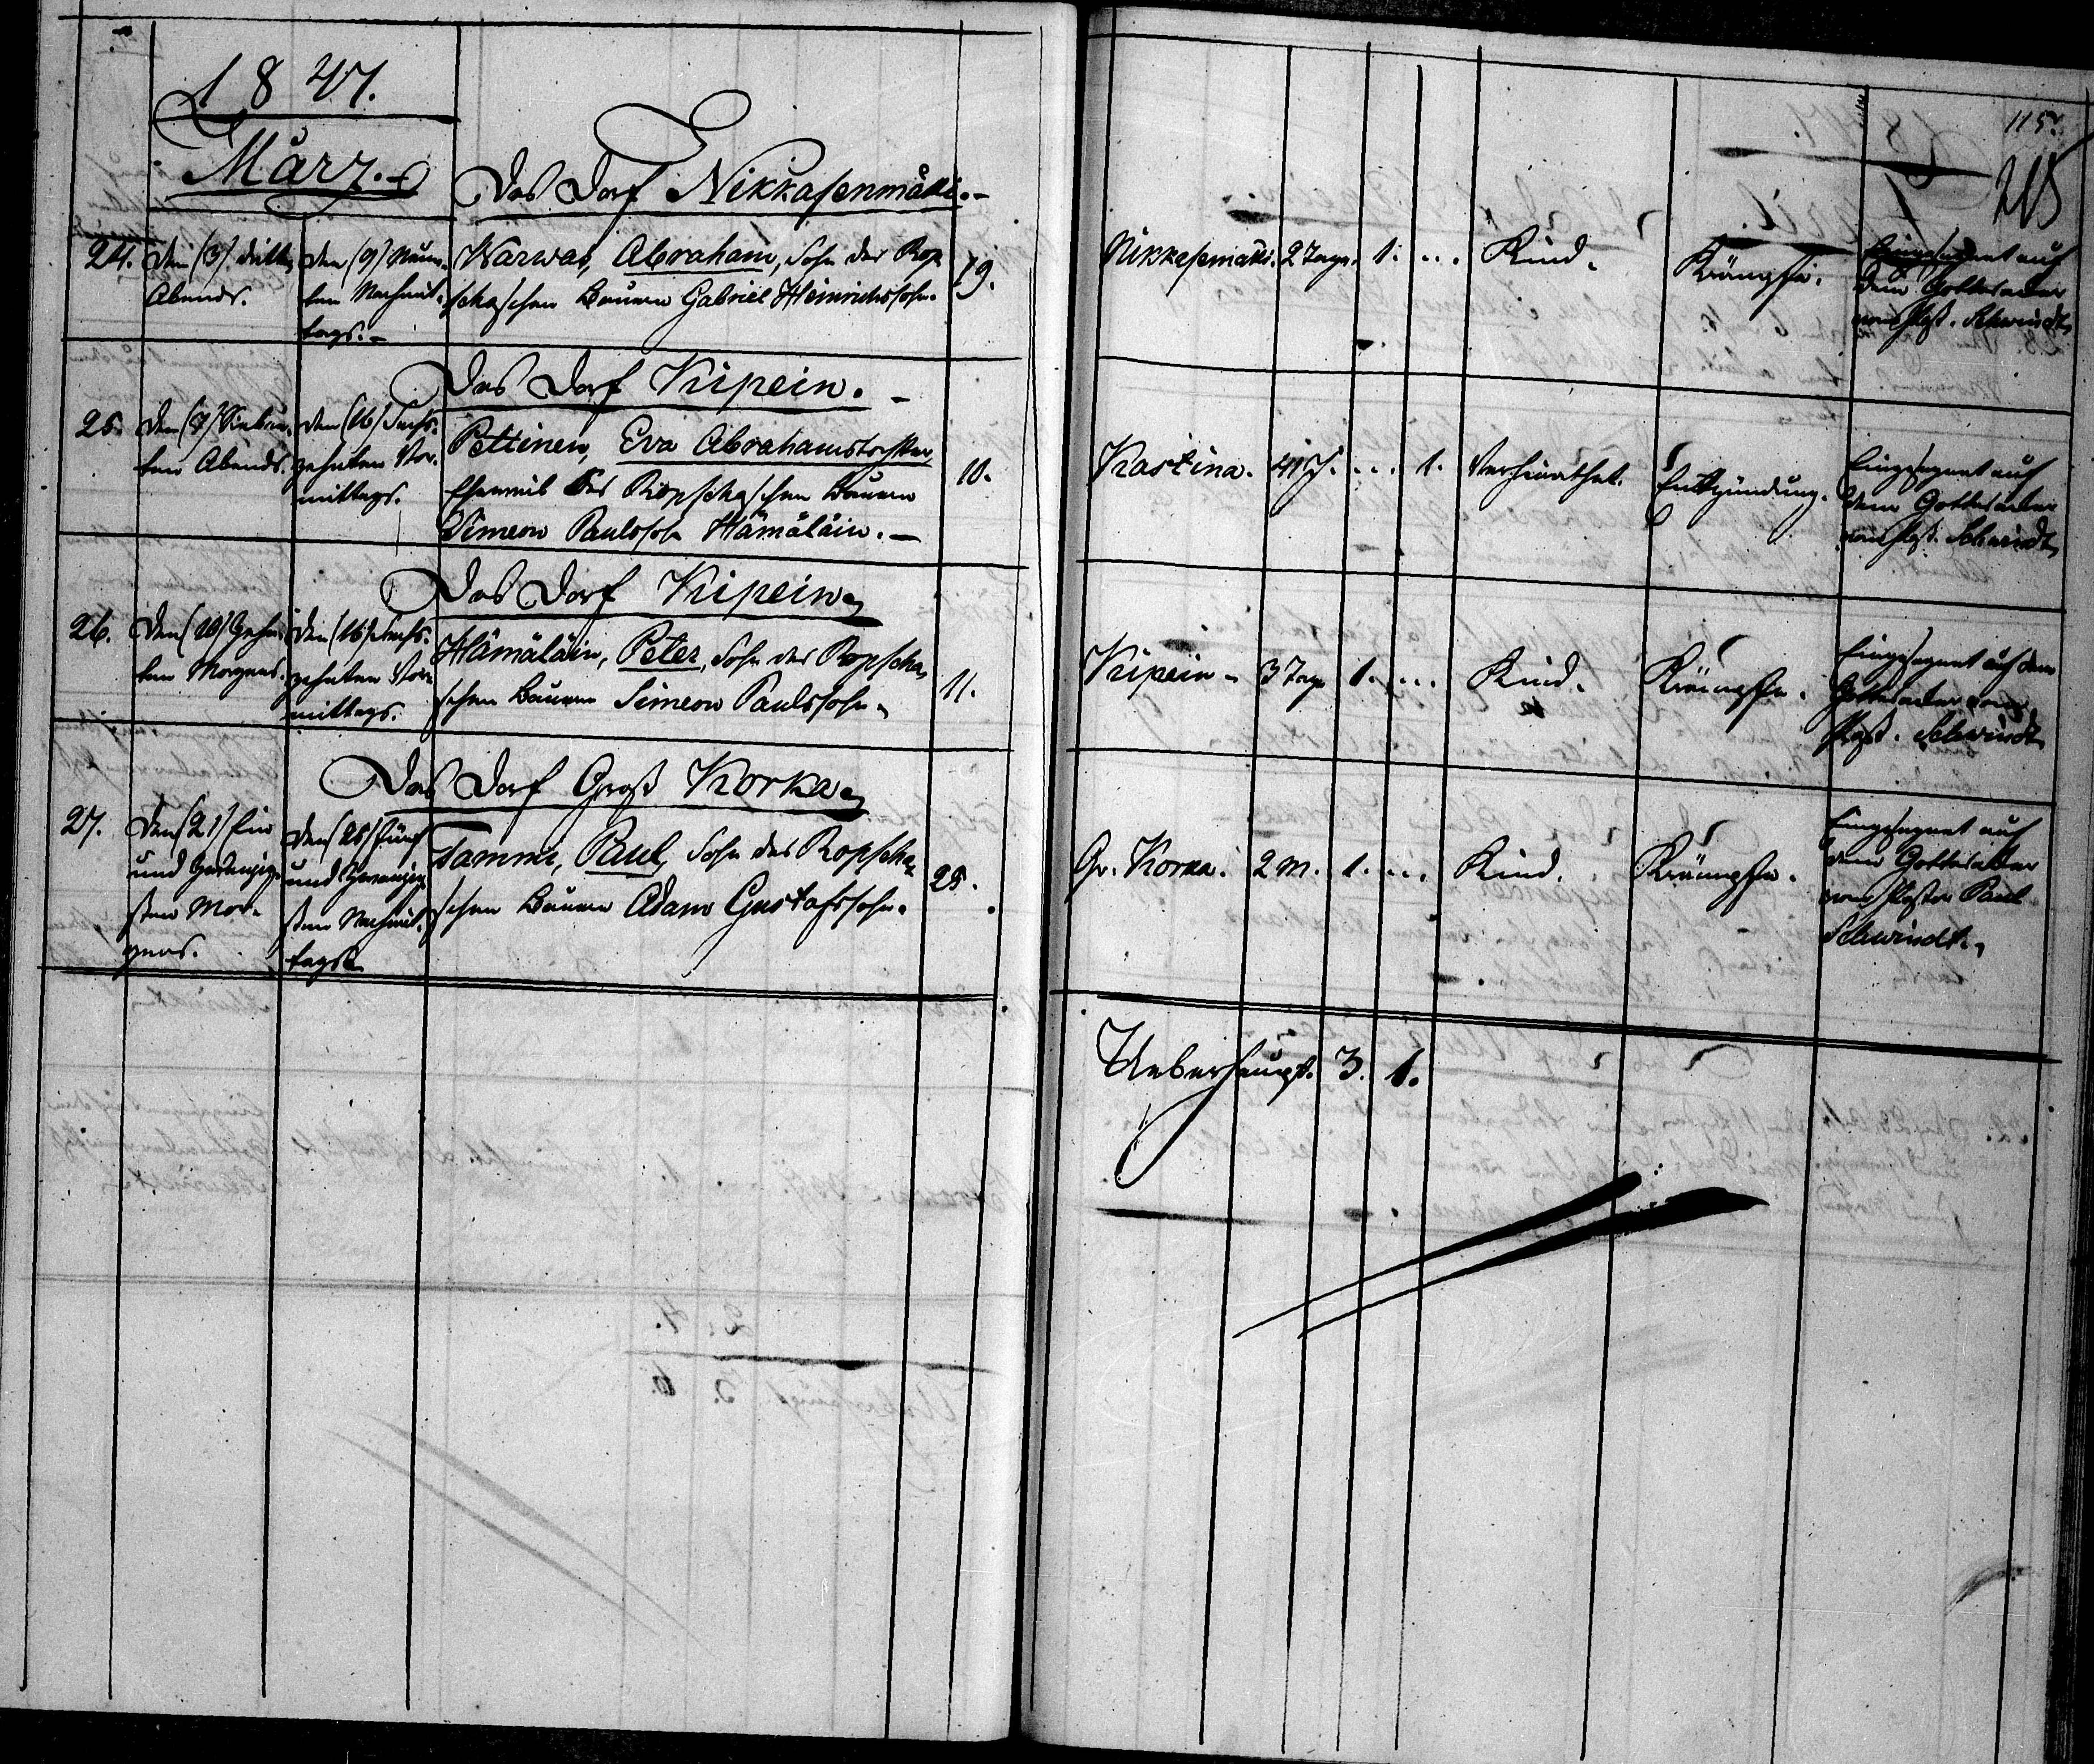 1847.
März.
115.
215
Das Dorf Nikkasenmäki.
24.
den (3) dritten
Abends.
den (9) Neun-
ten Nachmit-
tags.
Warwas, Abraham, Sohn des Rop-
schaschen Bauern Gabriel Heinrichssohn.
19.
Nikkasemäki.
2 Tage.
1.
...
Kind.
Krämpfe.
Eingesegnet auf
dem Gottesacker
vom Past. Schwindt.
Das Dorf Kipein.
25.
den (7) Sieben-
ten Abends.
den (16) Sechs-
zehnten Vor-
mittags.
Pettinen, Eva Abrahamstochter,
Eheweib des Ropschaschen Bauern
Simeon Paulssohn Hämäläin.
10.
Kaskina.
41 J.
...
1.
Verheirathet.
Entzündung.
Eingesegnet auf
dem Gottesacker
vom Past. Schwindt
Das Dorf Kipein
26.
den (10) Zehn-
ten Morgens.
den (16) Sechs-
zehnten Vor-
mittags.
Hämäläin, Peter, Sohn des Ropscha-
schen Bauern Simeon Paulssohn.
11.
Kipein
3 Tage
1.
...
Kind.
Krämpfe.
Eingesegnet auf dem
Gottesacker vom
Past. Schwindt
Das Dorf Groß Korka
27.
den (21) Ein
und zwanzig-
sten Mor-
gens.
den (25) Fünf
und zwanzig-
sten Nachmit-
tags.
Tammi, Paul, Sohn des Ropscha-
schen Bauern Adam Gustafssohn.
25.
Gr. Korka.
2 M.
1.
...
Kind.
Krämpfe.
Eingesegnet auf
dem Gottesacker
vom Pastor Paul
Schwindt.
Ueberhaupt. 3. 1.